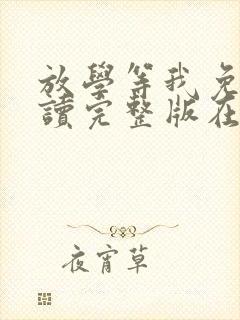 放學等我免
讀完整版在
夜宵草